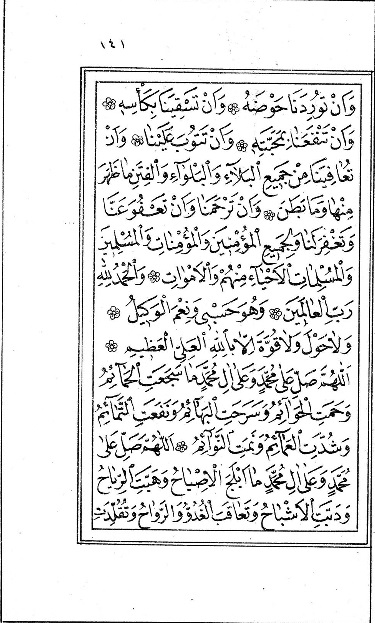 ١٤١
وَاَنْ تُورِدَنَا حَوْضَهُ وَاَنْ تَسْقِيَنَا بِكَأْسِهِ
وَاَنْ تَنْفَعَنَا بِمَحَبَّتِهِ وَاَنْ تَتُوبَ عَلَيْنَا وَاَنْ
تُعَافِيَنَا مِنْ جَمِيعِ الْبَلَاءِ وَالْبَلْوَاءِ وَالْفِتَنِ مَا ظَهَرَ
مِنْهَا وَمَا بَطَنَ وَاَنْ تَرْحَمَنَا وَاَنْ تَعْفُوَ عَنَّا
وَتَغْفِرَ لَنَا وَلِجَمِيعِ الْمُؤْمِنِينَ وَالْمُؤْمِنَاتِ وَالْمُسْلِمِينَ
وَالْمُسْلِمَاتِ الْاَحْيَاءِ مِنْهُمْ وَالْاَمْوَاتِ وَالْحَمْدُ لِلّٰهِ
رَبِّ الْعَالَمِينَ وَهُوَ حَسْبِي وَنِعْمَ الْوَكِيلُ
وَلَا حَوْلَ وَلَا قُوَّةَ اِلَّا بِاللّٰهِ الْعَلِيِّ الْعَظِيمِ
اَللّٰهُمَّ صَلِّ عَلَى مُحَمَّدٍ وَعَلَى اٰلِ مُحَمَّدٍ مَا سَجَعَتِ الْحَمَائِمُ
وَحَمَتِ الْحَوَائِمُ وَسَرَحَتِ الْبَهَائِمُ وَنَفَعَتِ التَّمَائِمُ
وَشُدَّتِ الْعَمَائِمُ وَنَمَتِ النَّوَائِمُ اَللّٰهُمَّ صَلِّ عَلَى
مُحَمَّدٍ وَعَلَى اٰلِ مُحَمَّدٍ مَا اَبْلَجَ الْاِصْبَاحُ وَهَبَّتِ الرِّيَاحُ
وَدَبَّتِ الْاَشْبَاحُ وَتَعَاقَبَ الْغُدُوُّ وَالرَّوَاحُ وَتُقُلِّدَتِ